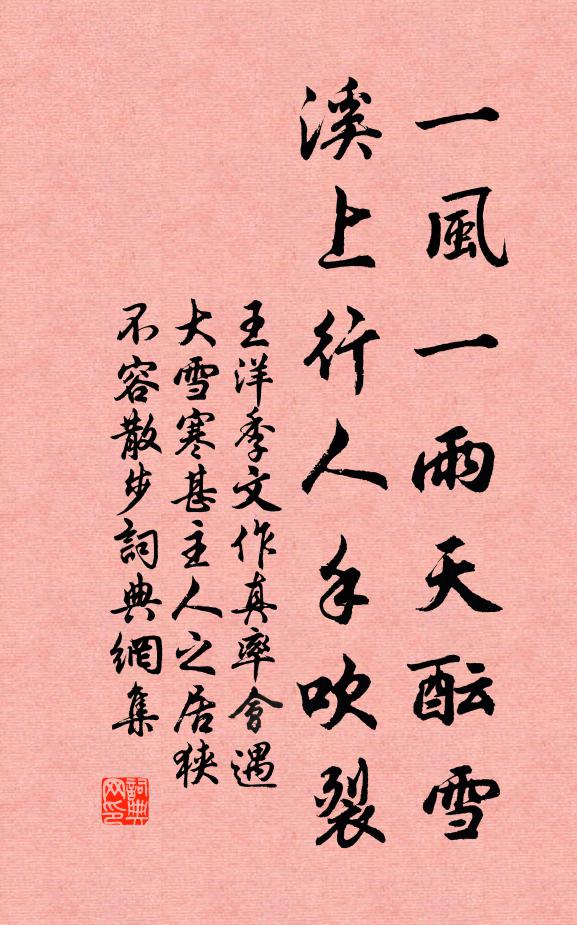 一風一雨天酝雪
溪上行人手吹裂
王洋季文作真率會遇
大雪寒甚主人之居狹
不容散步詞典網集
詞典
网印